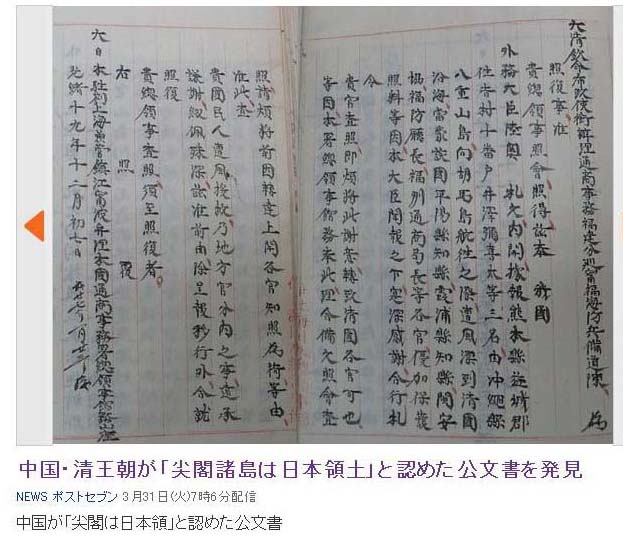 大清欽命布政使銜辦理通商事務福建分巡甯福海防兵備道陳 為
照復事准
貴總領事照會照得茲奉 我國
外務大臣陸奧 札文內開據報熊本縣
村十番戶井澤彌喜太等三名由沖繩縣
八重山島向胡馬島航往之際遭風漂到清國
沿海當蒙該國平陽縣知縣霞浦縣知縣閩安
協福防廳長福州通商局長等各官優加保護
照料等因本大臣聞報之下寔深感謝合行札
令
貴官查照即煩將此謝意轉致清國各官可也
等因本署總領事館務 此理合備文照會查
照請煩將前因轉達上開各官知照為荷等由
准此查
貴國民人遭風援救乃地方官分內之事遠承
謙謝紉佩殊深茲准前由除呈報移行外合就
照復
貴總領事查照須至照復者
右 照 復
大日本駐劄上海兼管鎮江甯波辦理本國通商事務署總領事官
光緒十九年十二月初七日
中国・清王朝が「尖閣諸島は日本領土」と認めた公文書を発見
NEWS ポストセブン 3月31日(火)7時6分配信
中国が「尖閣は日本領」と認めた公文書